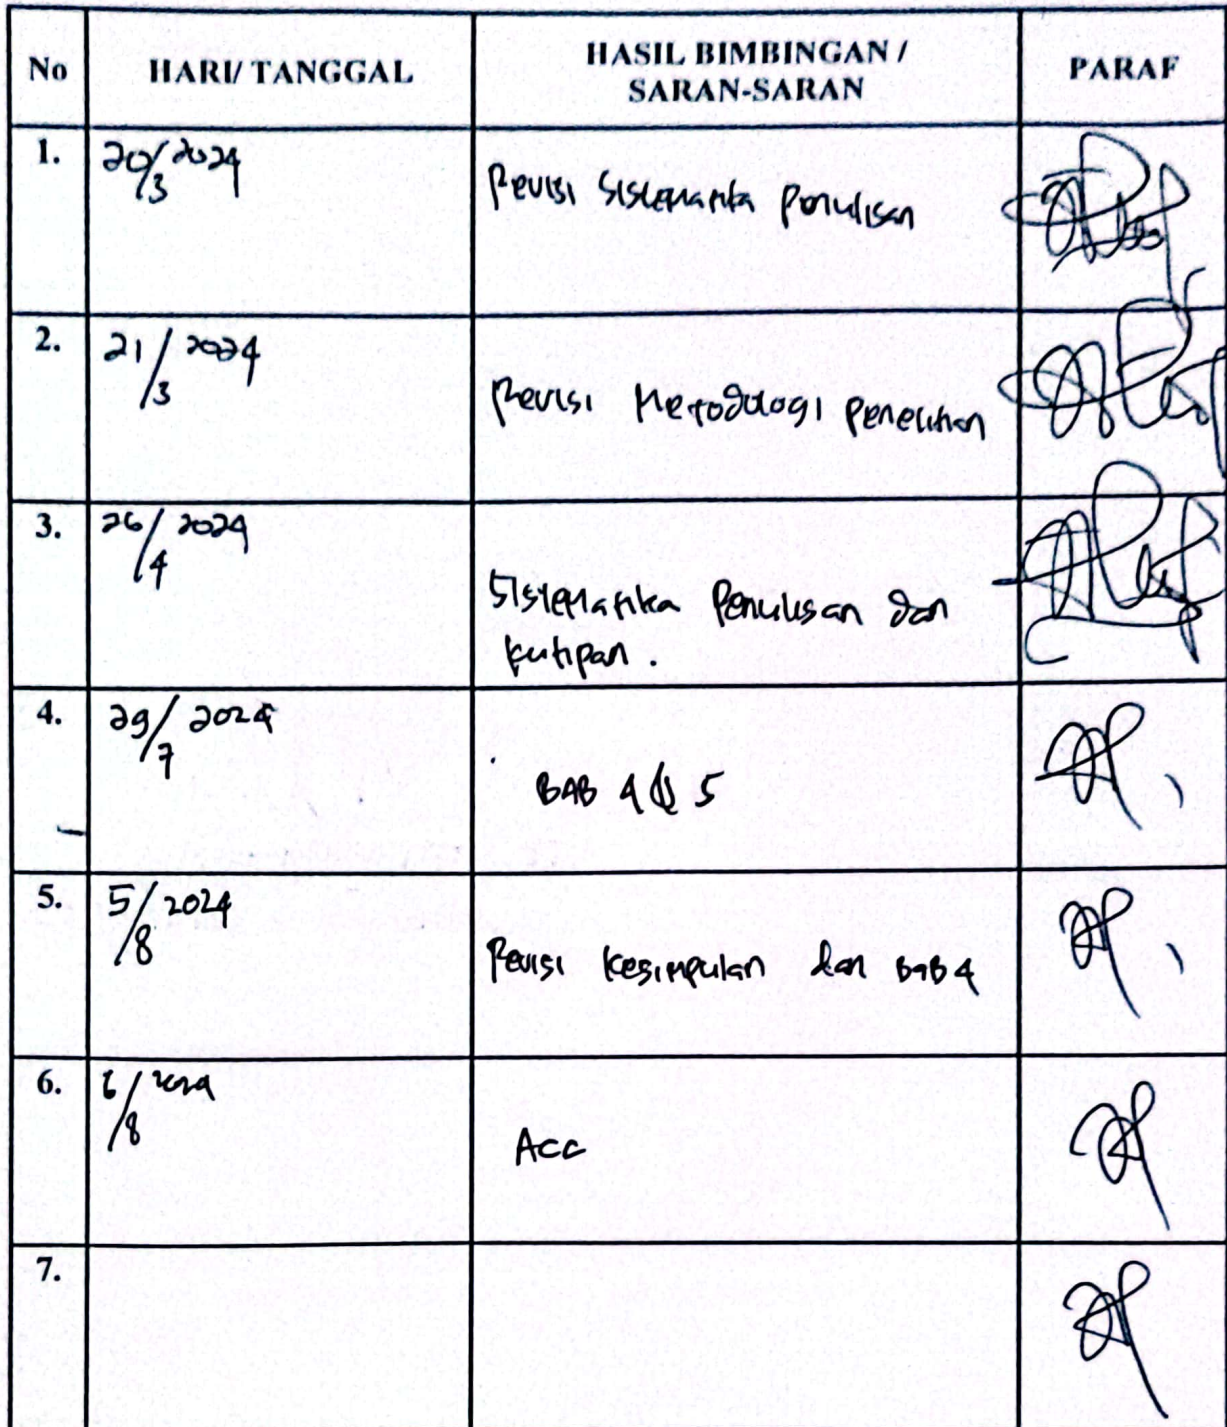 No HARI/ TANGGAL HASIL BIMBINGAN / PARAF
SARAN-SARAN
1. 20/3 2024
Revisi Sistematika Penulisan
2. 21/3 2024
Revisi Metodologi Penelitian
3. 26/4 2024
Sistematika Penulisan dan
kutipan.
4. 29/7 2024
BAB 4 & 5
5. 5/8 2024
Revisi Kesimpulan dan BAB 4
6. 6/8 2024
Acc
7.